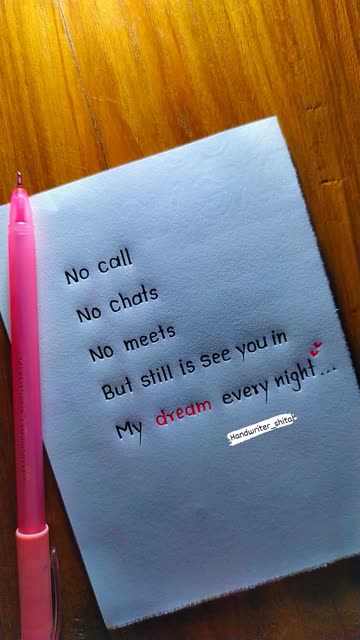 No call
No chats
No meets
But still is see you in
My dream every night...
Handwriter_shital